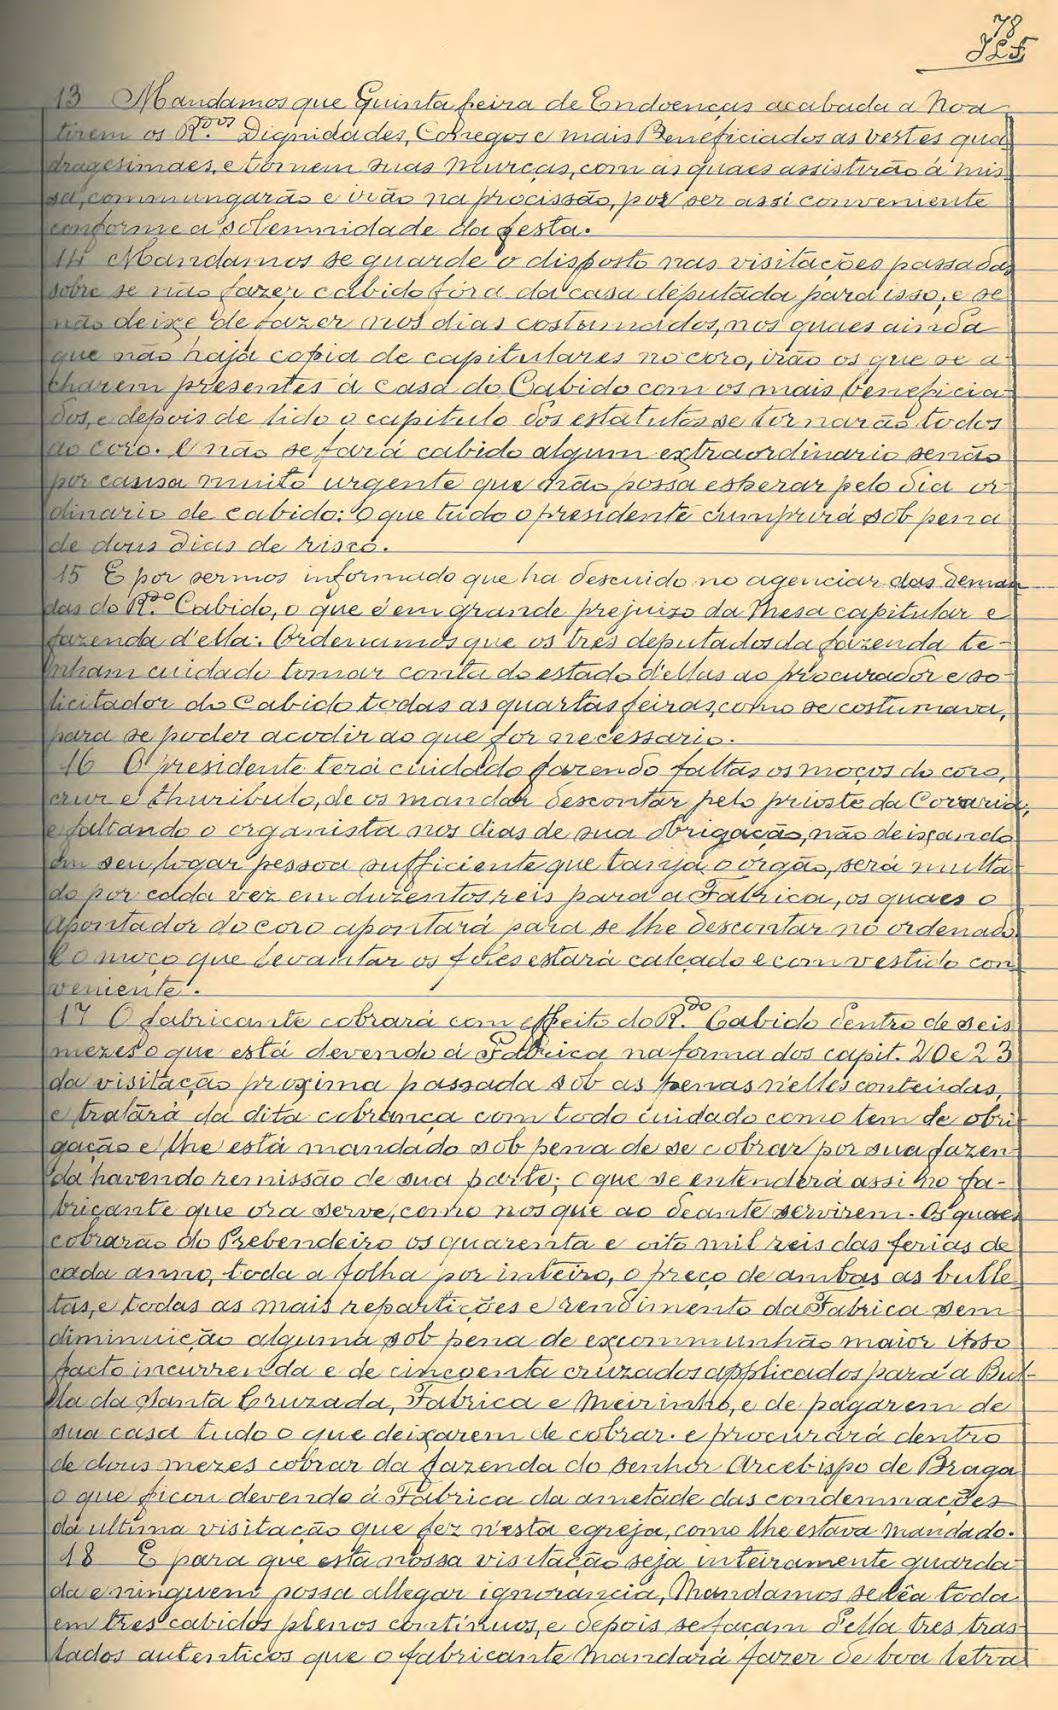 78
13 Mandamos que Quinta feira de Endoenças acabada a Noa
tirem os R.dos Dignidades, Conegos e mais Beneficiados as vestes qua
dragesimaes, e tomem suas murças, com as quaes assistirão á mis
sa, commungarão e irão na procissão, por ser assi conveniente
conforme a solemnidade da festa.
14 Mandamos se guarde o disposto nas visitações passadas
sobre se não fazer cabido fóra da casa deputada para isso; e se
não deixe de fazer nos dias costumados, nos quaes ainda
que não haja copia de capitulares no coro, irão os que se a-
charem presentes á casa do Cabido com os mais beneficia-
dos, e depois de lido o capitulo dos estatutos se tornarão todos
ao coro. E não se fará cabido algum extraordinario senão
por causa muito urgente que não possa esperar pelo dia or-
dinario de cabido: o que tudo o presidente cumprirá sob pena
de dous dias de risco.
15 E por sermos informado que ha descuido no agenciar das deman
das do R.do Cabido, o que é em grande prejuizo da Mesa capitular e
fazenda d'ella: Ordenamos que os tres deputados da fazenda te-
nham cuidado tomar conta do estado d'ellas ao procurador e so-
licitador do Cabido todas as quartas feiras, como se costumava,
para se poder acodir ao que for necessario.
16 O presidente terá cuidado fazendo faltas os moços do coro,
cruz e thuribulo, de os mandar descontar pelo prioste da Coraria;
e faltando o organista nos dias de sua obrigação, não deixando
em seu logar pessoa sufficiente que tanja o orgão, será multa-
do por cada vez em duzentos reis para a Fabrica, os quaes o
apontador do coro apontará para se lhe descontar no ordenado.
E o moço que levantar os foles estará calçado e com vestido con
veniente.
17 O fabricante cobrará com effeito do R.do Cabido dentro de seis
mezes o que está devendo á Fabrica na forma dos capit. 20 e 23
da visitação proxima passada sob as penas n'elles conteúdas,
e tratará da dita cobrança com todo cuidado como tem de obri-
gação e lhe está mandado sob pena de se cobrar por sua fazen-
da havendo remissão de sua parte; o que se entenderá assi no fa-
bricante que ora serve, como nos que ao deante servirem. Os quaes
cobrarão do Prebendeiro os quarenta e oito mil reis das ferias de
cada anno, toda a folha por inteiro, o preço de ambas as bulle
tas, e todas as mais repartições e rendimento da Fabrica sem
diminuição alguma sob pena de excommunhão maior ipso
facto incurrenda e de cincoenta cruzados applicados para a Bul-
la da Santa Cruzada, Fabrica e Meirinho, e de pagarem de
sua casa tudo o que deixarem de cobrar. e procurará dentro
de dous mezes cobrar da fazenda do senhor Arcebispo de Braga
o que ficou devendo á Fabrica da ametade das condemnações
da ultima visitação que fez n'esta egreja, como lhe estava mandado.
18 E para que esta nossa visitação seja inteiramente guarda-
da e ninguem possa allegar ignorancia, Mandamos se lêa toda
em tres cabidos plenos continuos, e depois se façam d'ella tres tras-
lados autenticos que o fabricante mandará fazer de boa letra